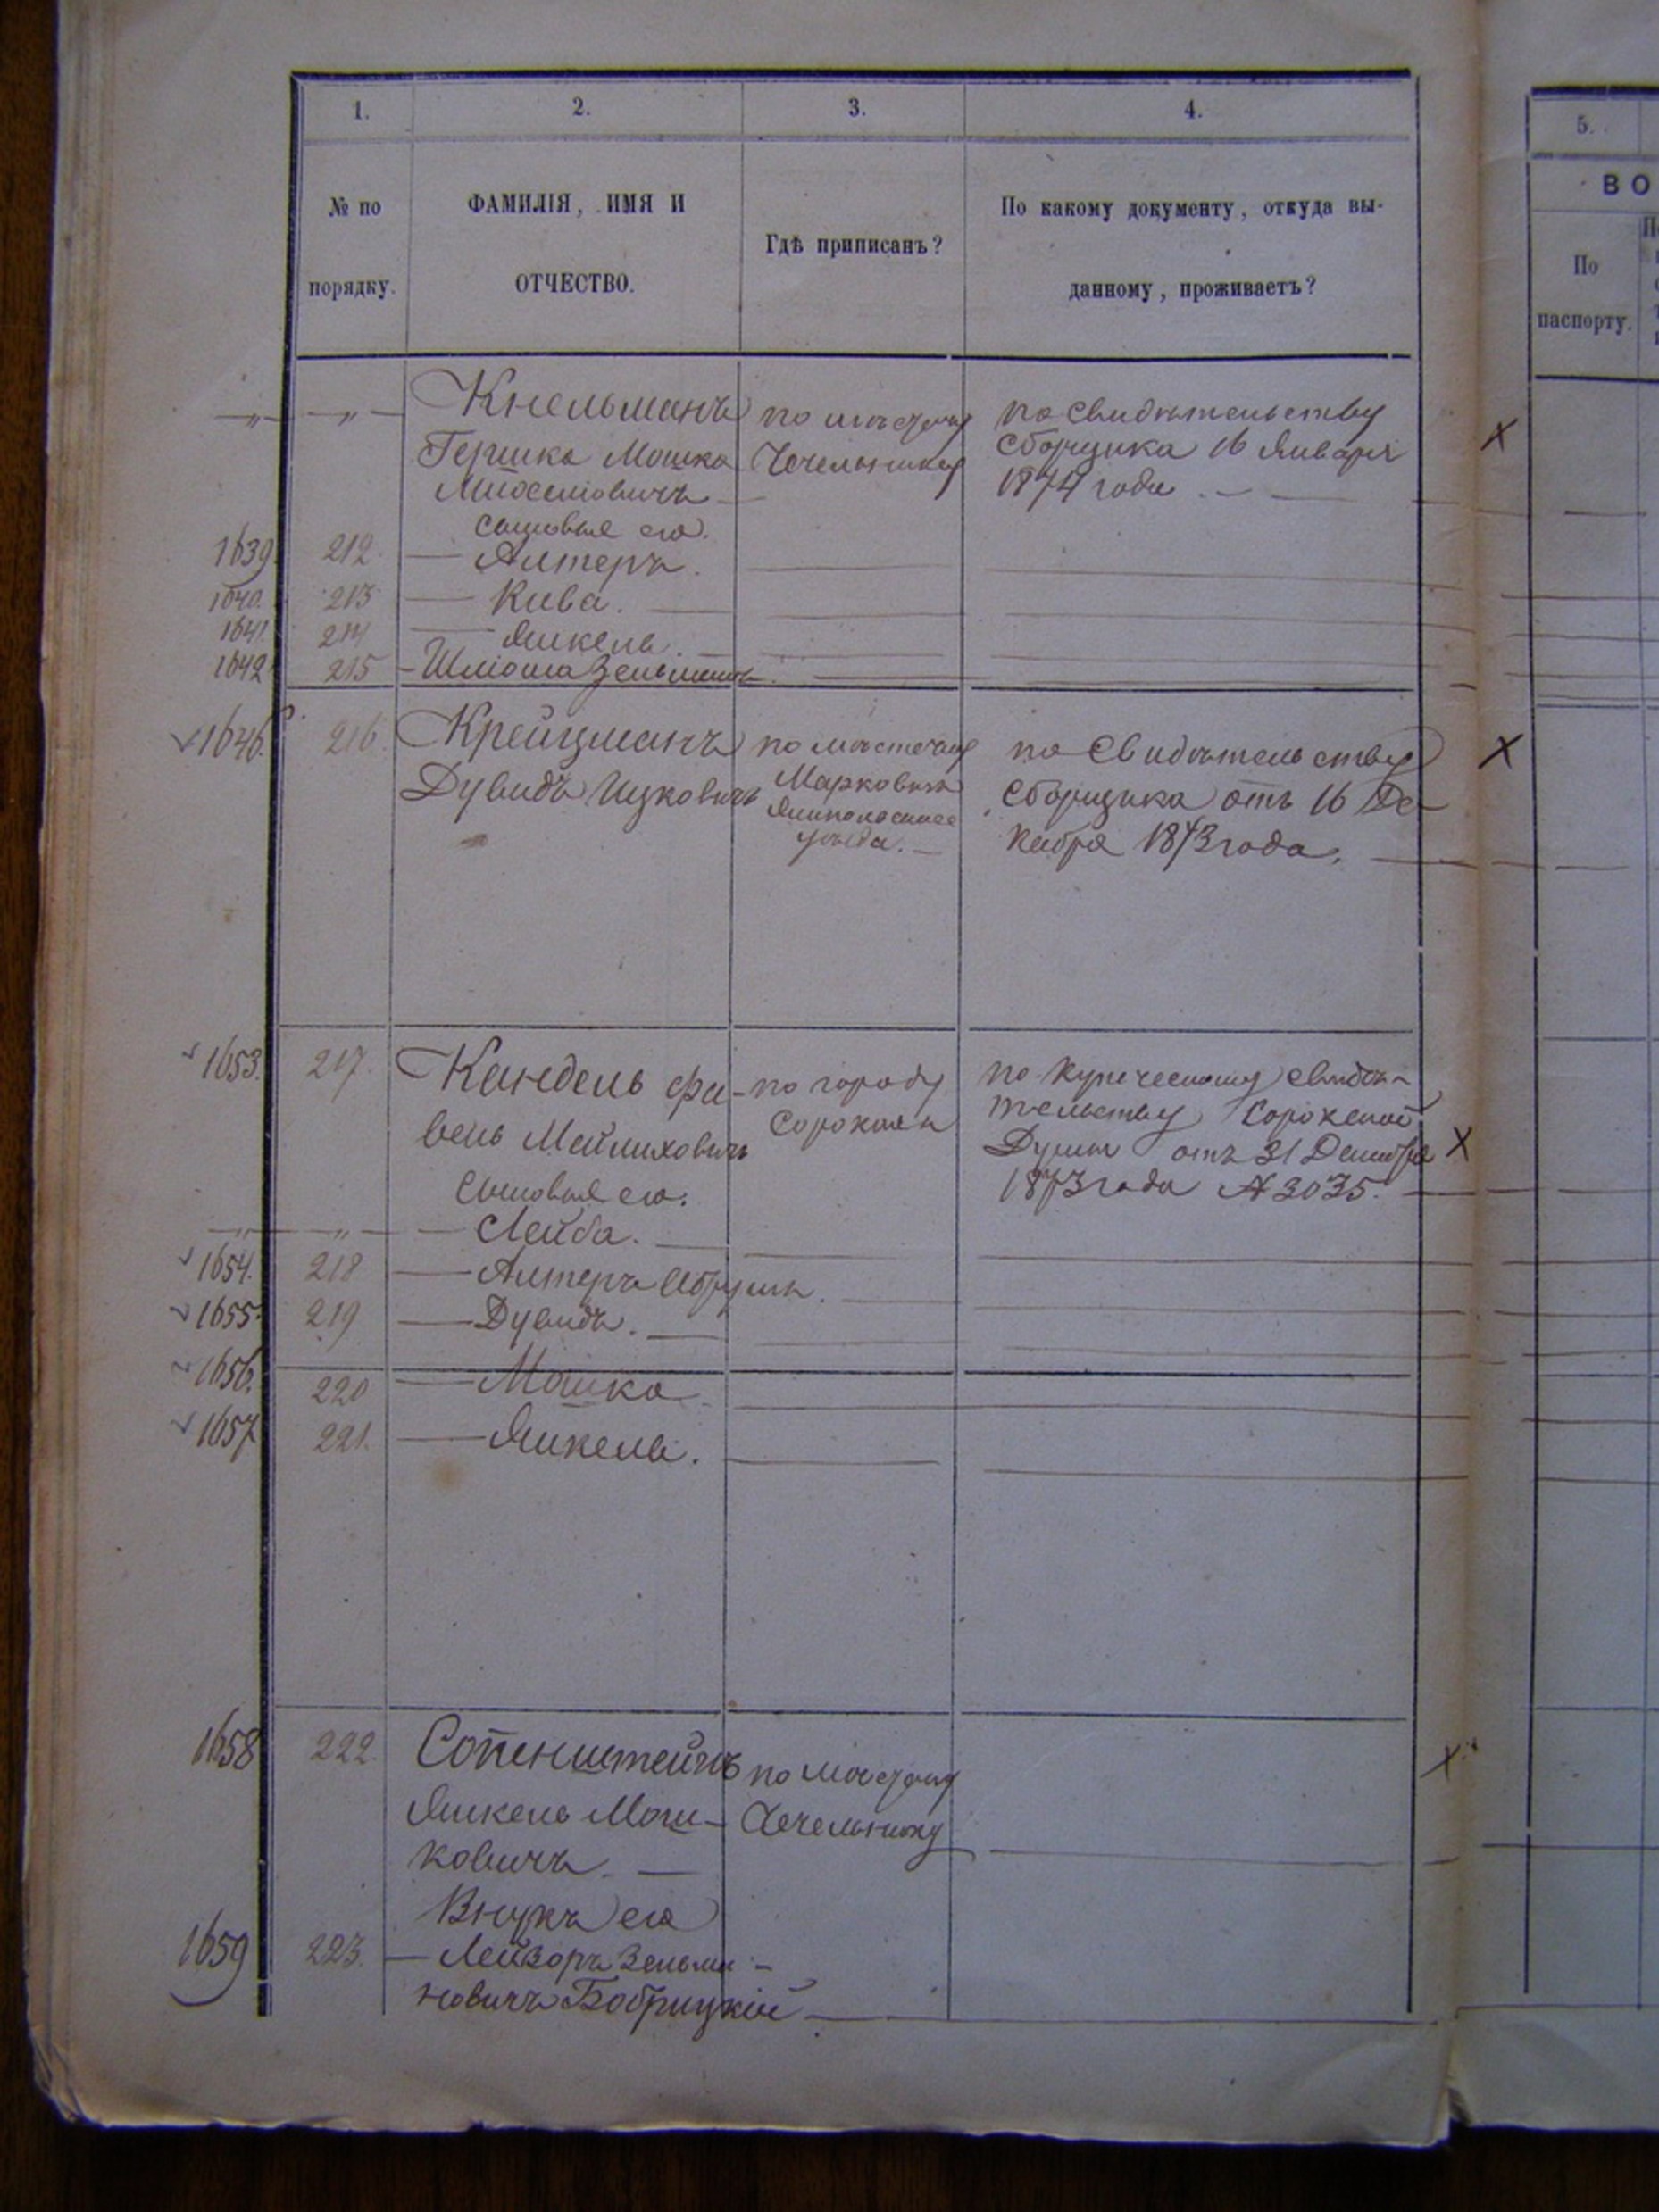 1. 2. 3. 4. 5.
№ по порядку.
ФАМИЛІЯ, ИМЯ И ОТЧЕСТВО.
Гдѣ приписанъ?
По какому документу, откуда вы-
данному, проживаетъ?
ВО
По паспорту.
—„— —„—
Кнельманъ
Гершко Мошко
сыновья его.
по мѣстечку
Чечельнику
по свидѣтельству
сборщика 16 Января
1874 года.
1639 212. — Алтеръ.
1640. 213 — Кива.
1641. 214 — Янкель.
1642 215 — Шліома Зельманъ.
1646. 216. Крейцманъ
Дувидъ Ицковичъ
по мѣстечку
Марковкѣ
уѣзда.
по свидѣтельству
сборщика отъ 16 Де-
кабря 1873 года.
1653. 217. Кандель Фа-
вель Мейлиховичъ
сыновья его:
по городу
Сорокамъ
по купеческому свидѣ-
тельству Сорокской
Думы отъ 31 Декабря
1873 года № 3035.
—„— —„— — Лейба.
1654. 218 — Алтеръ Абрумъ.
1655. 219 — Дувидъ.
1656. 220 — Мошко
1657 221. — Янкель.
1658 222. Сопенштейнъ
Янкель Мош-
ковичъ. —
Внукъ его
по мѣстечку
Чечельнику
1659 223. — Лейзоръ Зельма-
новичъ Бобрицкій